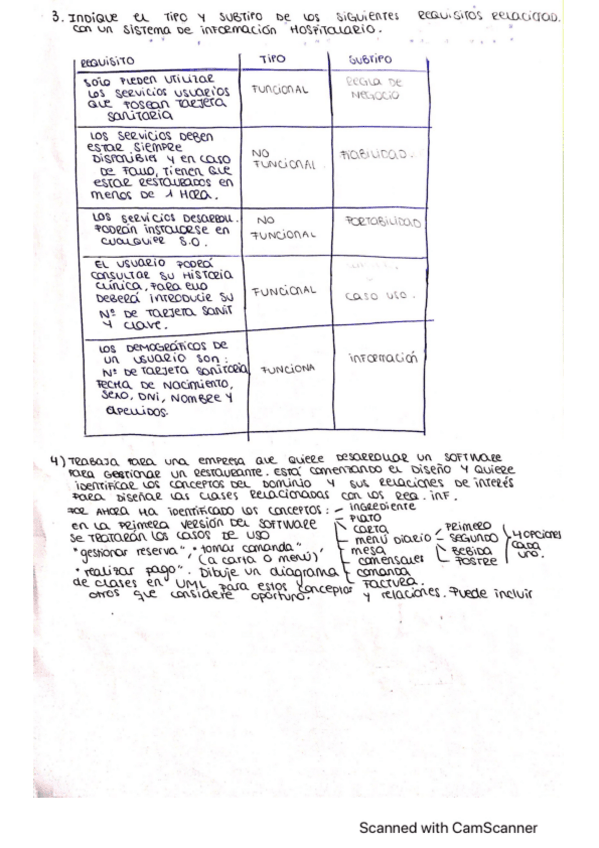 3. Indique el tipo y subtipo de los siguientes requisitos relaciond.
con un sistema de información hospitalario.
REQUISITO TIPO SUBTIPO
Solo pueden utilizar
los servicios usuarios
que posean tarjeta
sanitaria
FUNCIONAL
REGLA DE
NEGOCIO
Los servicios deben
estar siempre
disponibles y en caso
de fallo, tienen que
estar restaurados en
menos de 1 hora.
NO
FUNCIONAL
FIABILIDAD.
Los servicios desarroll.
podrán instalarse en
cualquier S.O.
NO
FUNCIONAL
PORTABILIDAD
El usuario podrá
consultar su historia
clínica, para ello
deberá introducir su
Nº de tarjeta sanit
y clave.
FUNCIONAL
CASO USO.
Los demográficos de
un usuario son:
Nº de tarjeta sanitaria
fecha de nacimiento,
sexo, DNI, nombre y
apellidos.
FUNCIONA
información
4) Trabaja para una empresa que quiere desarrollar un software
para gestionar un restaurante. Está comenzando el diseño y quiere
identificar los conceptos del dominio y sus relaciones de interés
para diseñar las clases relacionadas con los req. inf.
Por ahora ha identificado los conceptos: - ingrediente
- plato
- carta
- menú diario - primero
- segundo
- bebida
- postre
4 opciones
cada
uno.
- mesa
- comensales
- comanda
- factura.
en la primera versión del software
se tratarán los casos de uso
"gestionar reserva", "tomar comanda"
(a carta o menú)
"realizar pago". Dibuje un diagrama
de clases en UML para estos conceptos y relaciones. Puede incluir
otros que considere oportuno.
Scanned with CamScanner